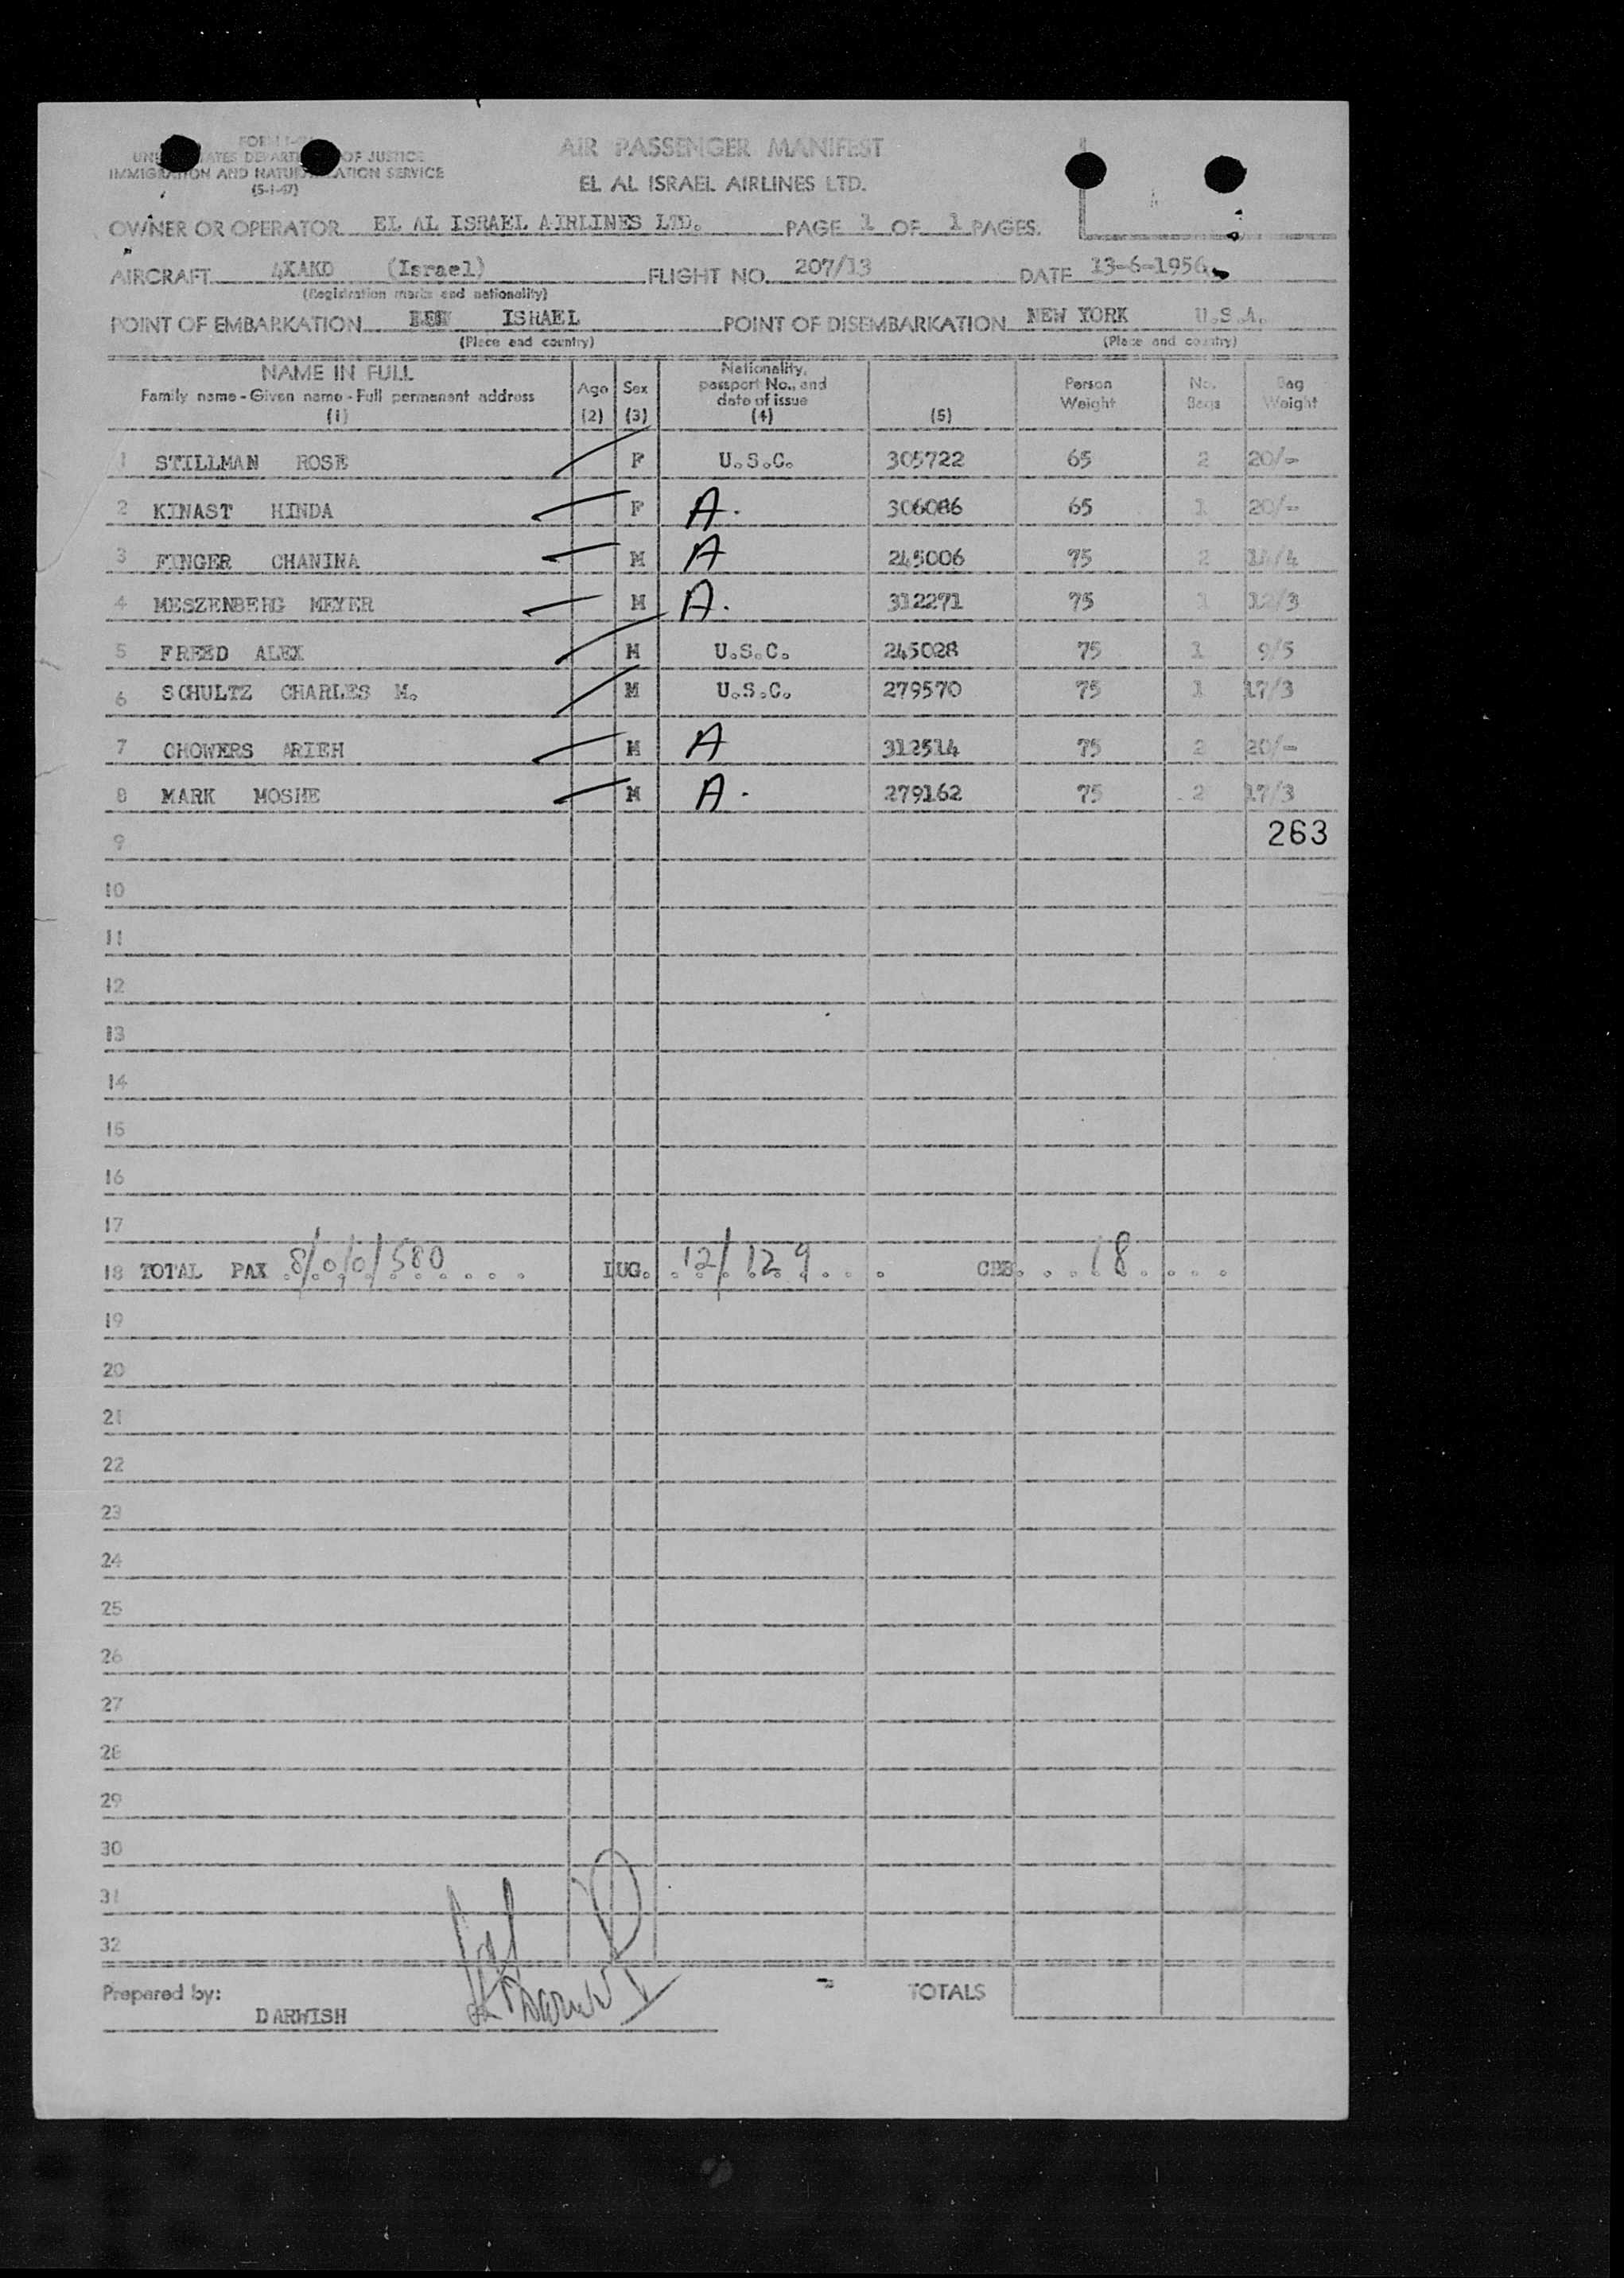 FORM I-
UNITED STATES DEPARTMENT OF JUSTICE
IMMIGRATION AND NATURALIZATION SERVICE
(5-1-47)
AIR PASSENGER MANIFEST
EL AL ISRAEL AIRLINES LTD.
OWNER OR OPERATOR EL AL ISRAEL AIRLINES LTD. PAGE 1 OF 1 PAGES.
AIRCRAFT 4XAKD (Israel) FLIGHT NO. 207/13 DATE 13-6-1956
(Registration marks and nationality)
POINT OF EMBARKATION ISRAEL POINT OF DISEMBARKATION NEW YORK U.S.A.
(Place and country) (Place and country)
NAME IN FULL Family name - Given name - Full permanent address (1) Age (2) Sex (3) Nationality, passport No., and date of issue (4) (5) Person Weight No. Bags Bag Weight
1 STILLMAN ROSE F U.S.C. 305722 65 2 20/-
2 KINAST HINDA F A. 306086 65 1 20/-
3 FINGER CHANINA M A 245006 75 2 14/4
4 MESZENBERG MEYER M A. 312271 75 1 12/3
5 FREED ALEX M U.S.C. 245028 75 1 9/5
6 SCHULTZ CHARLES M. M U.S.C. 279570 75 1 17/3
7 CHOWERS ARIEH M A 312514 75 2 20/-
8 MARK MOSHE M A. 279162 75 2 17/3
9 263
10
11
12
13
14
15
16
17
18 TOTAL PAX 8/0/0/580 LUG. 12/129 18
19
20
21
22
23
24
25
26
27
28
29
30
31
32
Prepared by: TOTALS
DARWISH